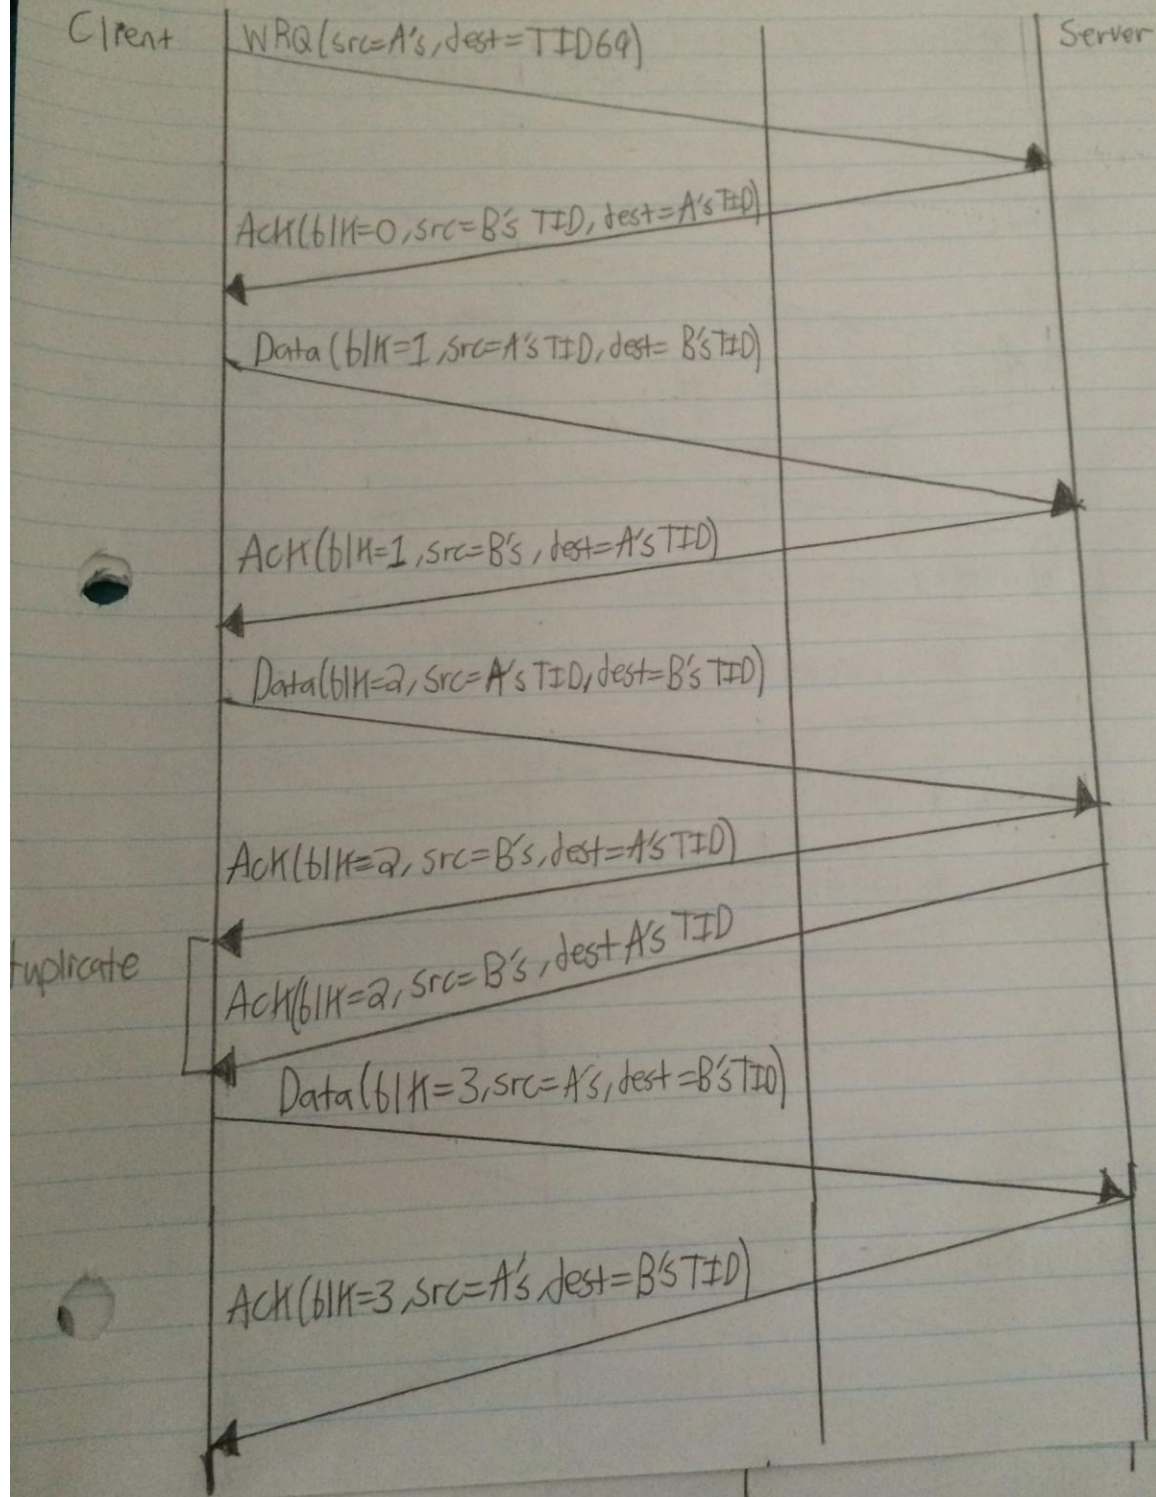 Client
WRQ(src=A's, dest=TID69)
Server
Ack(blk=0, src=B's TID, dest=A's TID)
Data(blk=1, src=A's TID, dest= B's TID)
Ack(blk=1, src=B's, dest=A's TID)
Data(blk=2, src=A's TID, dest=B's TID)
Ack(blk=2, src=B's, dest=A's TID)
duplicate
Ack(blk=2, src=B's, dest A's TID
Data(blk=3, src=A's, dest=B's TID)
Ack(blk=3, src=A's, dest=B's TID)